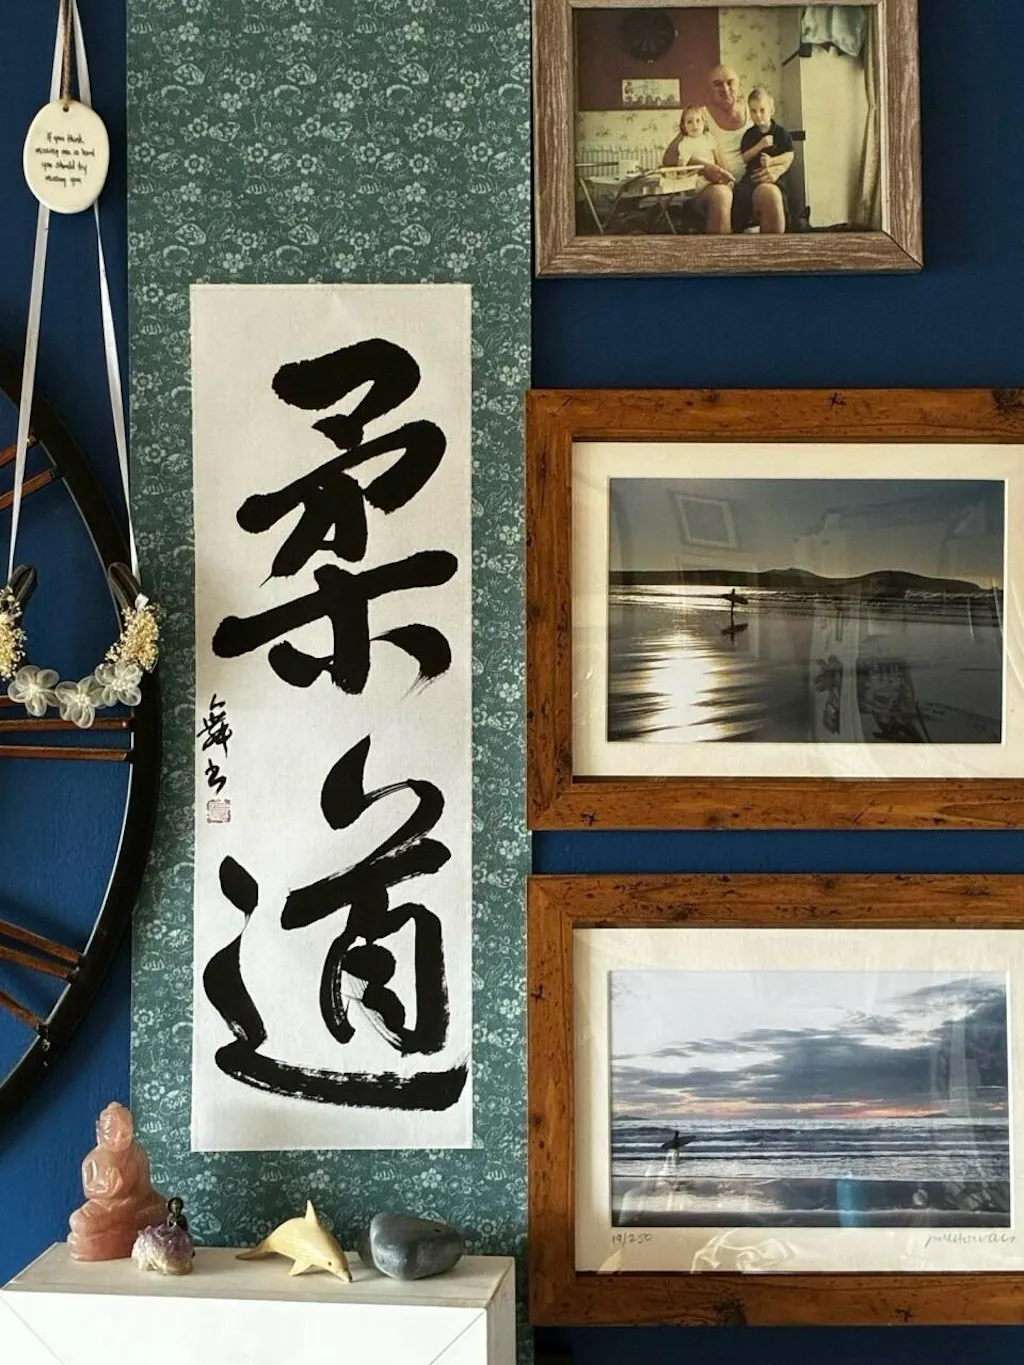 If you think
missing me is hard
you should try
missing you
柔道
舞書
19/250